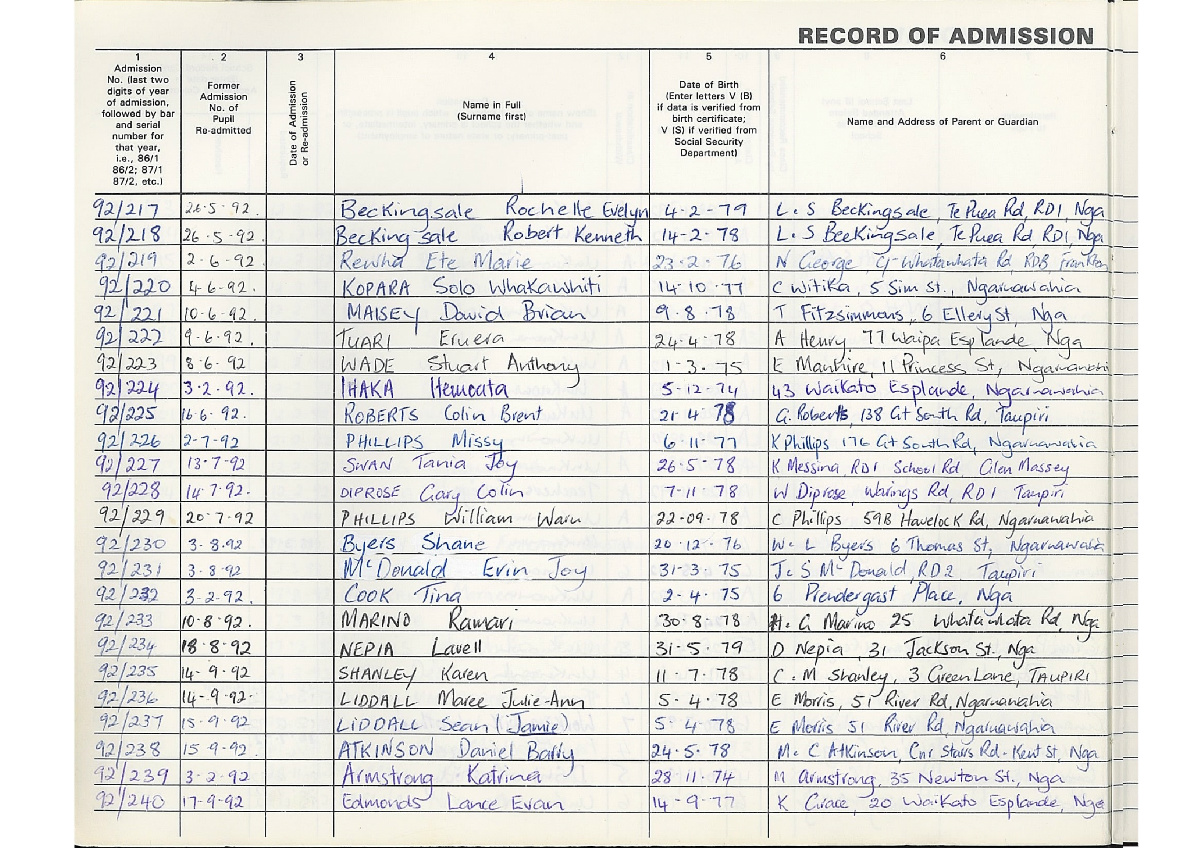 RECORD OF ADMISSION
1 2 3 4 5 6
Admission No. (last two digits of year of admission, followed by bar and serial number for that year, i.e., 86/1 86/2; 87/1 87/2, etc.)
Former Admission No. of Pupil Re-admitted
Date of Admission or Re-admission
Name in Full (Surname first)
Date of Birth (Enter letters V (B) if data is verified from birth certificate; V (S) if verified from Social Security Department)
Name and Address of Parent or Guardian
92/217 26·5·92. Beckingsale Rochelle Evelyn 4-2-79 L. S Beckingsale, Te Puea Rd, RD1, Nga
92/218 26·5·92. Beckingsale Robert Kenneth 14-2-78 L. S Beckingsale, Te Puea Rd, RD1, Nga
92/219 2·6·92. Rewha Ete Marie 23·2·76 N George, C/- Whatawhata Rd, RD8 Frankton
92/220 4·6·92. KOPARA Solo Whakawhiti 14·10·77 C Witika, 5 Sim St., Ngaruawahia
92/221 10·6·92. MAISEY David Brian 9·8·78 T Fitzsimmons, 6 Ellery St, Nga
92/222 9·6·92. TUARI Eruera 24·4·78 A Henry, 77 Waipa Esplande, Nga
92/223 8·6·92 WADE Stuart Anthony 1·3·75 E Manhire, 11 Princess St, Ngaruawahia
92/224 3·2·92. IHAKA 5·12·74 43 Waikato Esplande, Ngaruawahia
92/225 16·6·92. ROBERTS Colin Brent 21·4·78 G. Roberts, 138 Gt South Rd, Taupiri
92/226 2-7-92 PHILLIPS Missy 6·11·77 K Phillips 176 Gt South Rd, Ngaruawahia
92/227 13·7·92 SWAN Tania Joy 26·5·78 K Messina, RD1 School Rd Glen Massey
92/228 14·7·92. DIPROSE Gary Colin 7·11·78 W Diprose, Warings Rd, RD1 Taupiri
92/229 20·7·92 PHILLIPS William 22·09·78 C Phillips 59B Havelock Rd, Ngaruawahia
92/230 3·8·92 Byers Shane 20·12·76 W. L Byers 6 Thomas St, Ngaruawahia
92/231 3·8·92 McDonald Erin Joy 31·3·75 J. S McDonald, RD2 Taupiri
92/232 3-2-92. COOK Tina 2-4·75 6 Prendergast Place, Nga
92/233 10·8·92. MARINO Ramari 30·8·78 H. G Marino 25 Whatawhata Rd, Nga
92/234 18·8·92 NEPIA Lavell 31·5·79 D Nepia, 31 Jackson St., Nga
92/235 14·9·92 SHANLEY Karen 11·7·78 C. M Shanley, 3 Green Lane, TAUPIRI
92/236 14·9·92· LIDDALL Maree Julie-Ann 5·4·78 E Morris, 51 River Rd, Ngaruawahia
92/237 15·9·92 LIDDALL Sean (Jamie) 5·4·78 E Morris 51 River Rd, Ngaruawahia
92/238 15·9·92 ATKINSON Daniel Barry 24·5·78 M. C Atkinson, Cnr Stairs Rd. Kent St, Nga
92/239 3·2·92 Armstrong Katrina 28·11·74 M Armstrong, 35 Newton St., Nga
92/240 17-9-92 Edmonds Lance Evan 14-9-77 K Grace, 20 Waikato Esplande, Nga